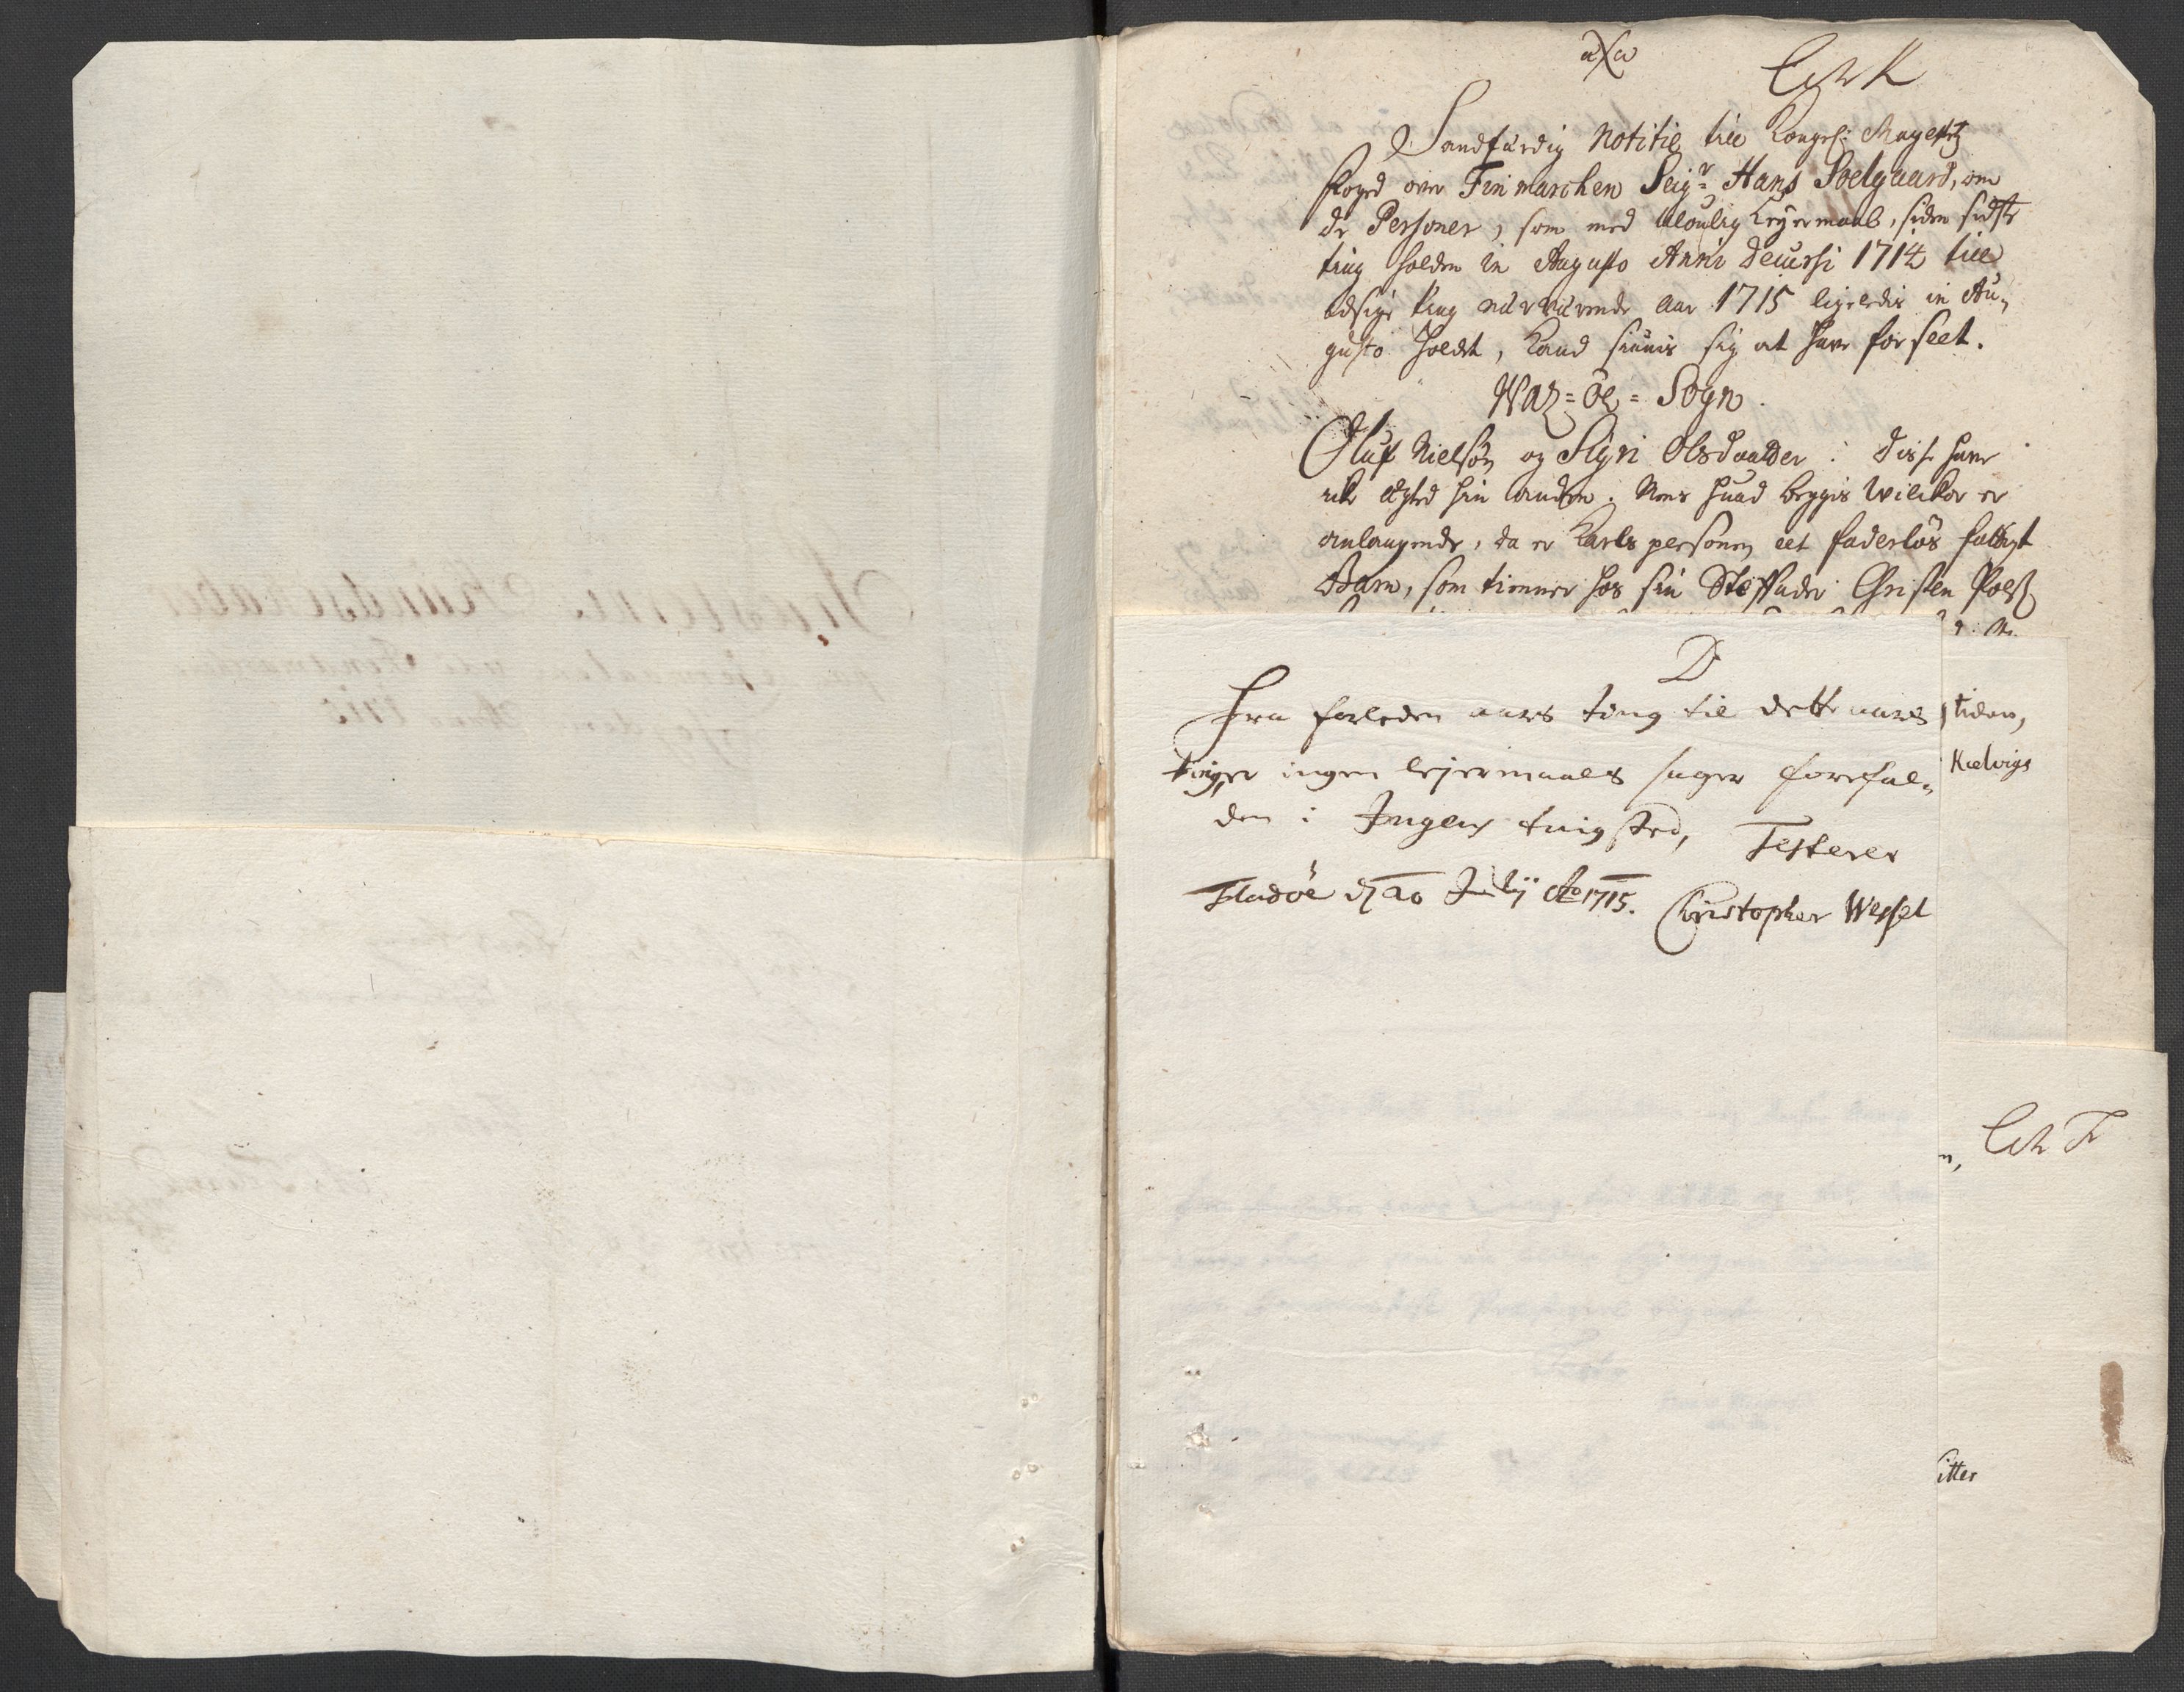 Litr K
Sandfærdig Notitie till Kongel: Mayestetz
foged over Finmarchen Seigr Hans Soelgaard, om
de Personer, som med uloulig Leyermaal, siden sidste
ting holden in Augusto Anni decursi 1714 till
nærværende Aar 1715 ligeledis in Au-
gusto holdt, kand findis sig at have forseet.
Waz-öe-Sogn
Oluf Nielsøn og Sigri Olsdaatter: disse have
icke egted hin anden. Mens huad beggis Wilckor er
anlangende, da er Karls personen eet faderløs fattigt
Barn, som tienner hos sin Steffader Christen Poelss
D
Fra forleden aars ting til dette aars
ting, er ingen leyermaals sager forefal-
den i Ingens tingsted, Testerer
Fladöe d 20 Julij Ao 1715. Christopher Wessel
tiden,
Kielvigs
Litr F
itter